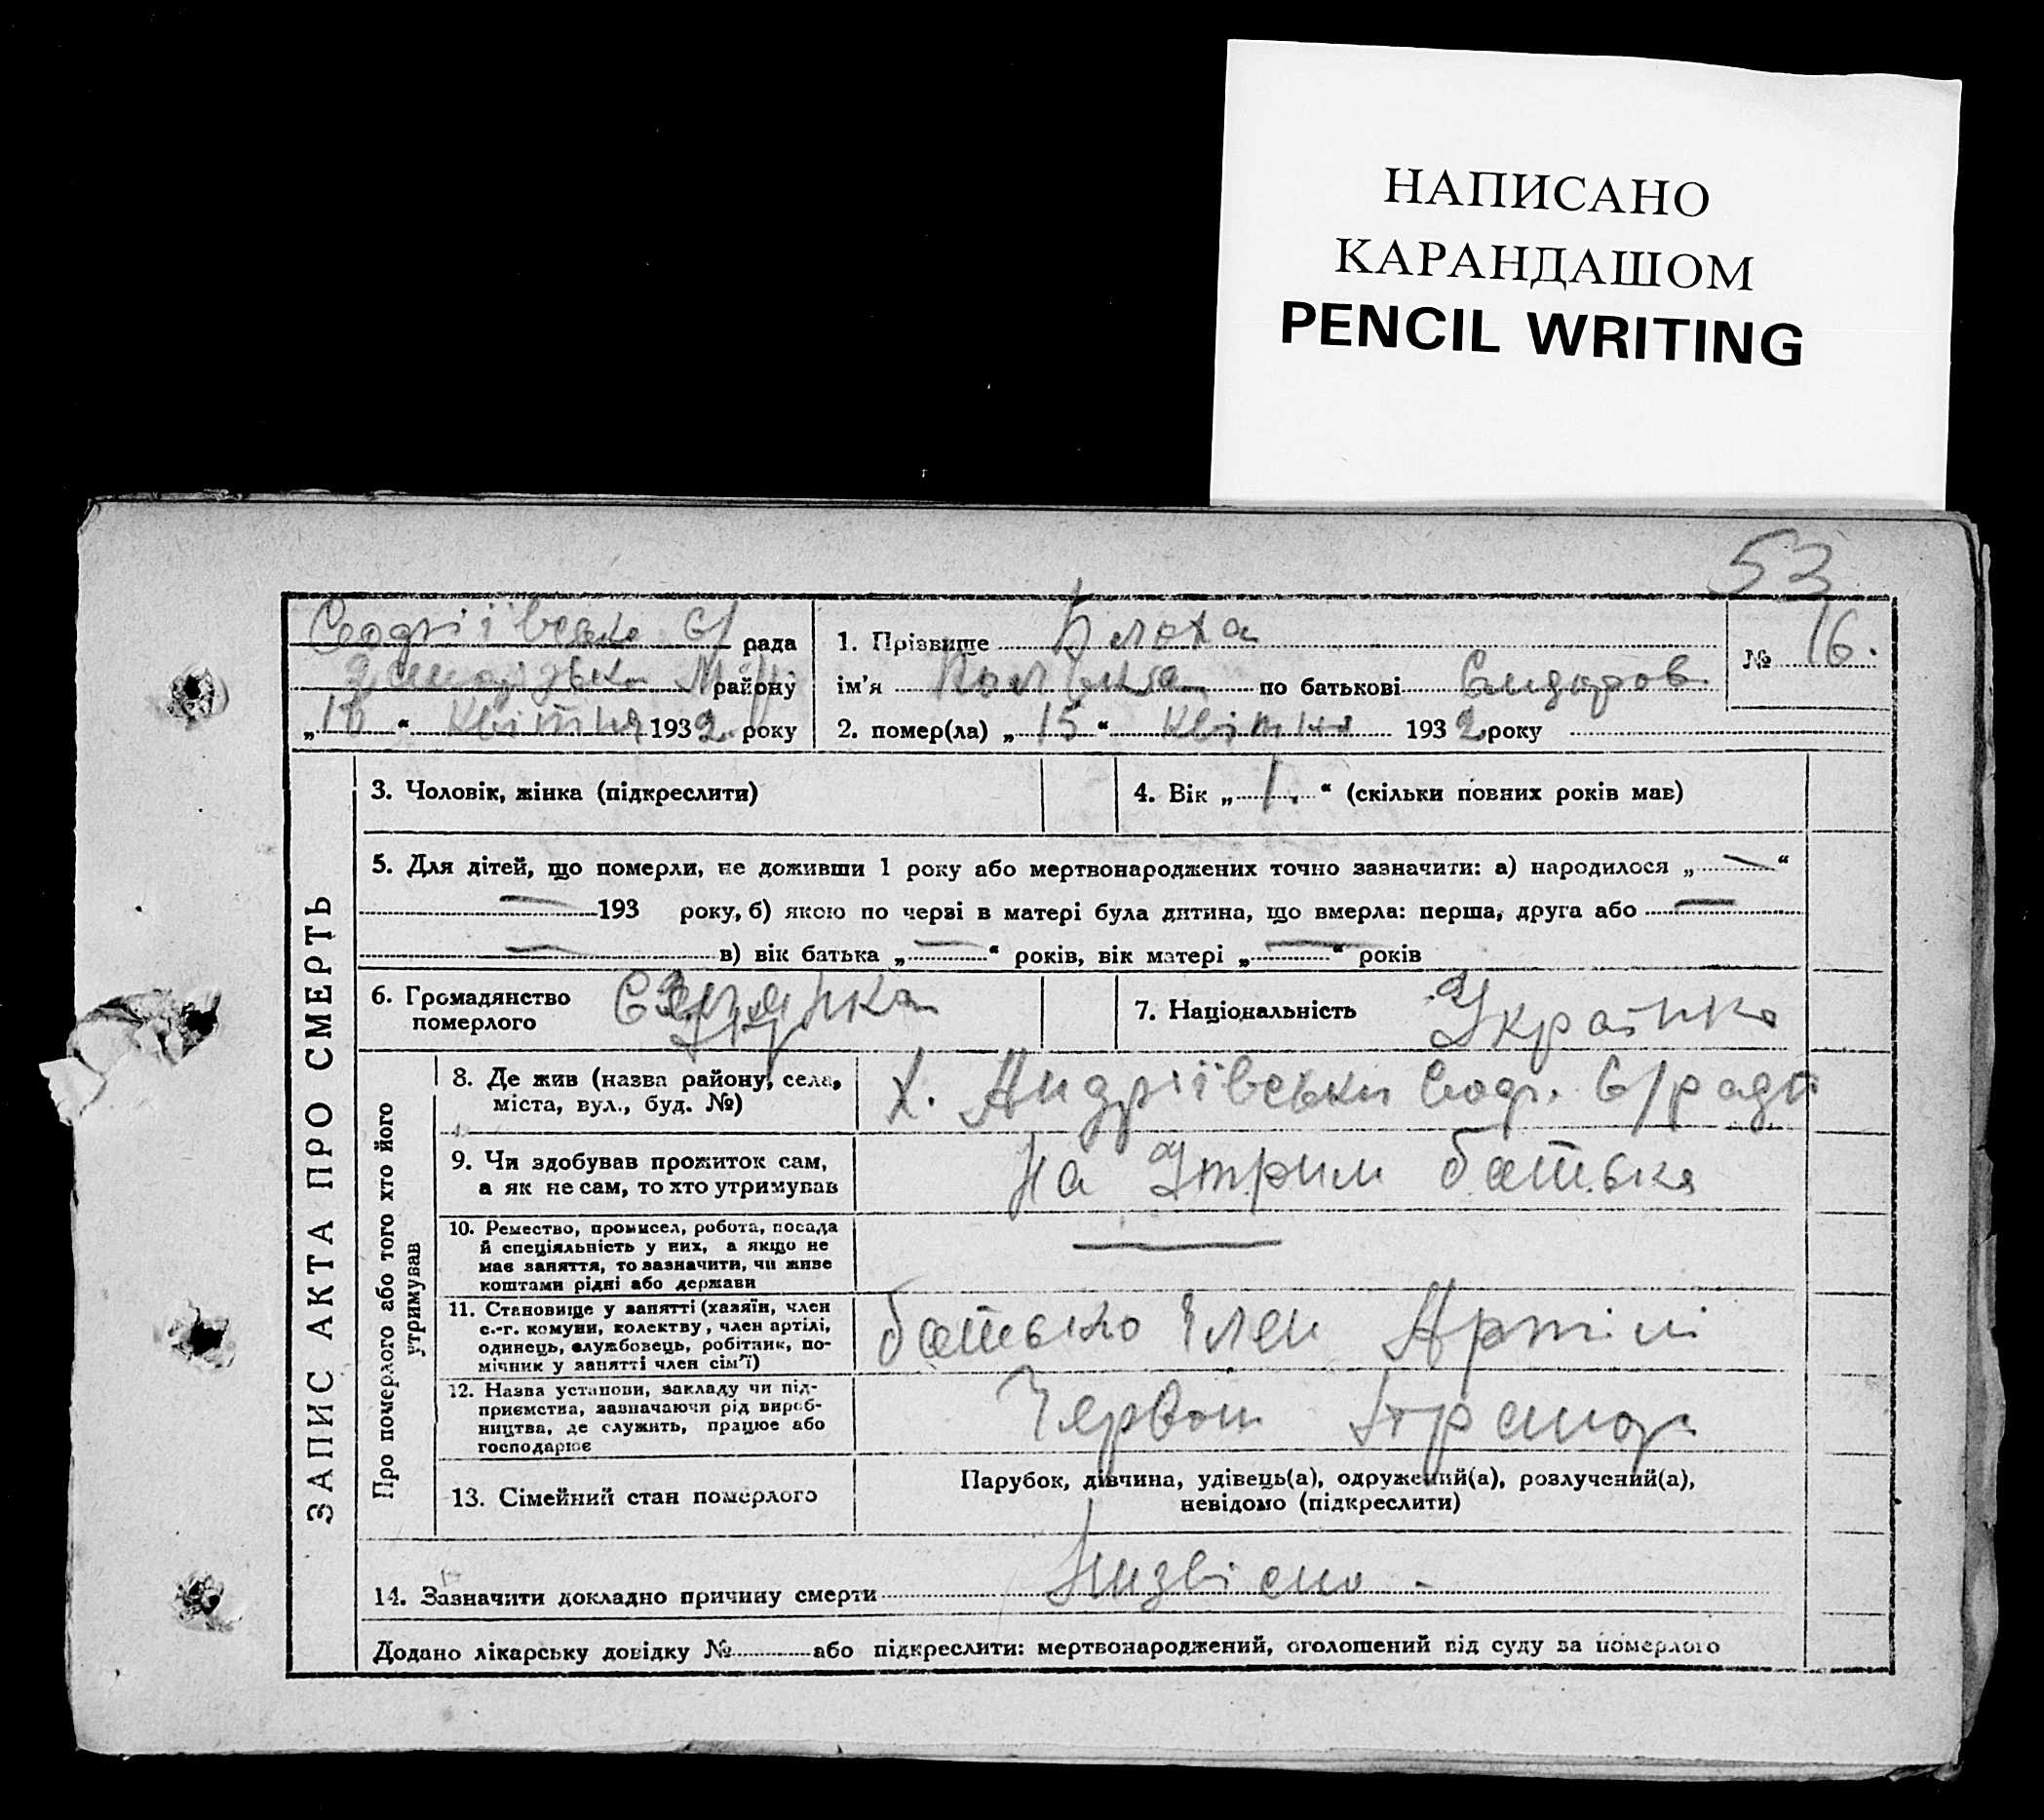 НАПИСАНО
КАРАНДАШОМ
PENCIL WRITING
53
рада
району
квітня 1932 року
1. Прізвище Блоха
ім'я по батькові Сидоров
2. помер(ла) „15“ квітня 1932 року
№ 16.
ЗАПИС АКТА ПРО СМЕРТЬ
3. Чоловік, жінка (підкреслити)
4. Вік „1.“ (скільки повних років має)
5. Для дітей, що померли, не доживши 1 року або мертвонароджених точно зазначити: а) народилося „—“
— 193 року, б) якою по черзі в матері була дитина, що вмерла: перша, друга або —
— в) вік батька „—“ років, вік матері „—“ років
6. Громадянство
померлого
7. Національність Українка
Про померлого або того хто його
утримував
8. Де жив (назва району, села,
міста, вул., буд. №)
Х. Андріївськи С/ради
9. Чи здобував прожиток сам,
а як не сам, то хто утримував
На Утрим батька
10. Ремество, промисел, робота, посада
й спеціяльність у них, а якщо не
має заняття, то зазначити, чи живе
коштами рідні або держави
—
11. Становище у занятті (хазяїн, член
с.-г. комуни, колектву, член артілі,
одинець, службовець, робітник, по-
мічник у занятті член сім'ї)
батько Член Артілі
12. Назва установи, закладу чи під-
приємства, зазначаючи рід вироб-
ництва, де служить, працює або
господарює
Червон
13. Сімейний стан померлого
Парубок, дівчина, удівець(а), одружений(а), розлучений(а),
невідомо (підкреслити)
14. Зазначити докладно причину смерти
Додано лікарську довідку № або підкреслити: мертвонароджений, оголошений від суду за померлого